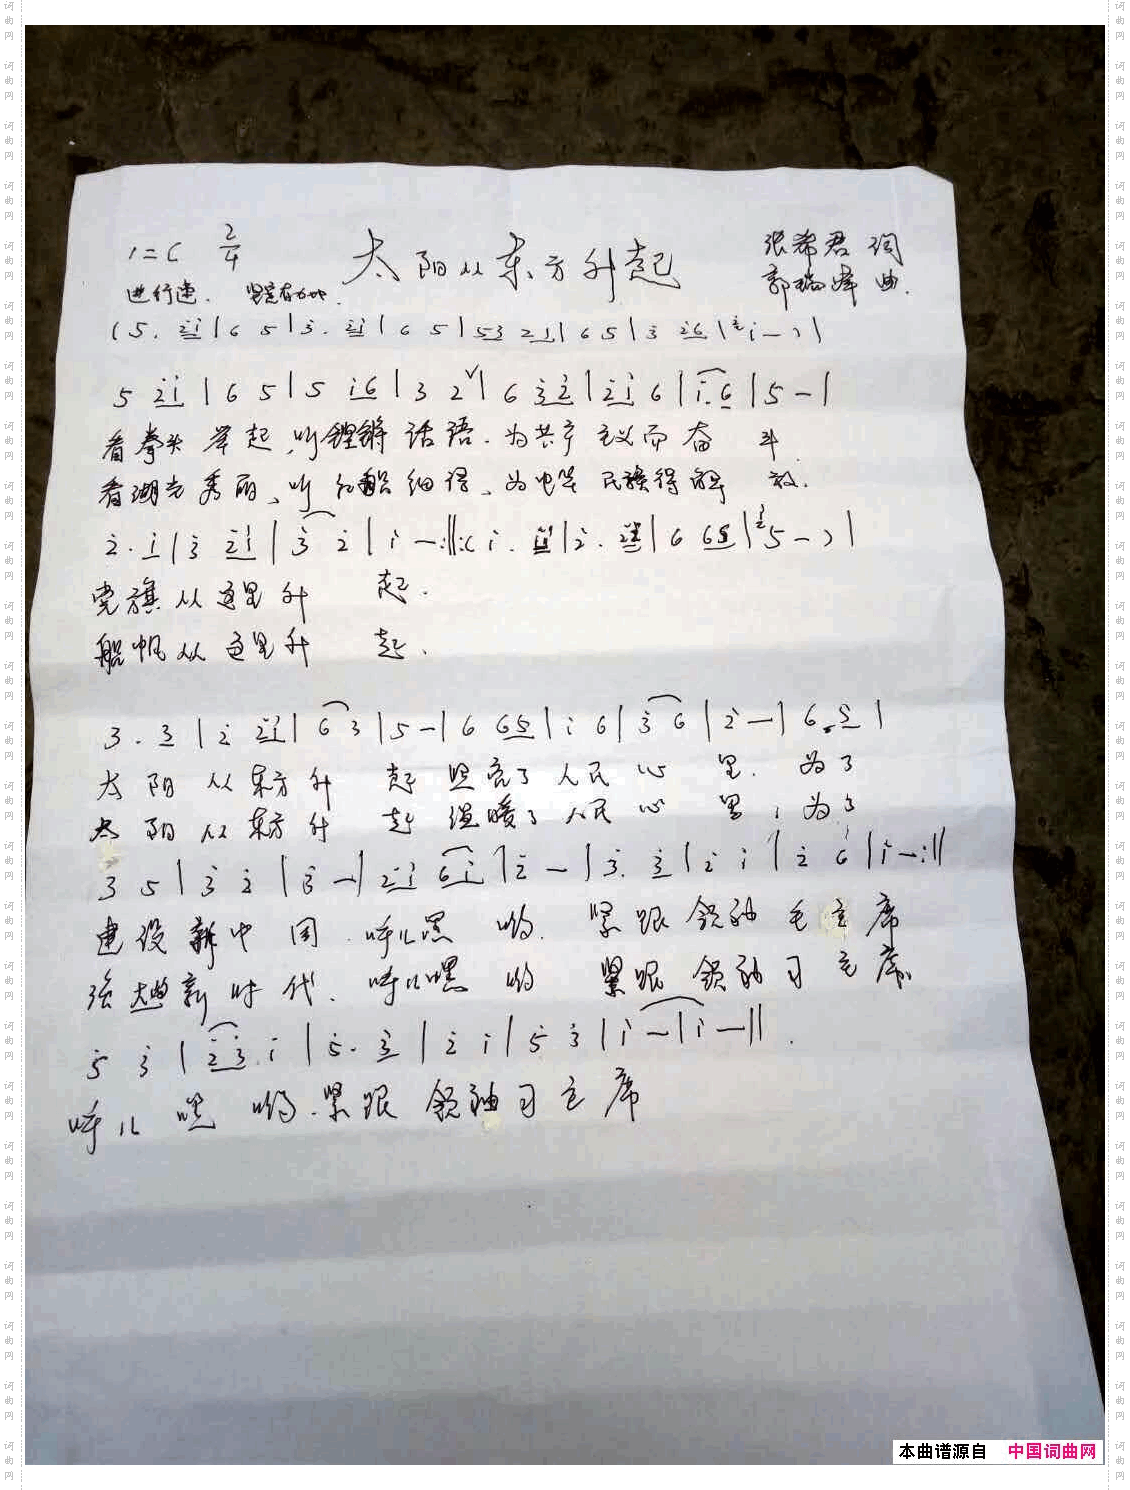 1=C 2/4 太阳从东方升起 张希君 词
进行速. 坚定有力地. 郭瑞峰 曲.
(5. 2̇1̇|6 5|3̇. 2̇1̇|6 5|53 21|6 5|3̇ 2̇6|1̇—)|
5 2̇1̇|6 5|5 1̇6|3 2ˇ|6 3̇2̇|2̇1̇ 6|1̇. 6|5 —|
看拳头 举起,听铿锵 话语.为共产主义而奋 斗.
看湖光秀丽、听红船细语、为中华民族得解 放.
2̇. 1̇|3̇ 2̇1̇|3̇ 2̇|1̇ —:‖:(1̇. |2̇. |6 65|5 —)|
党旗从这里升 起.
船帆从这里升 起.
3. 3|2̇ 2̇1̇|6 3|5 —|6 65|1̇ 6|3̇ 6|2̇ —|6. 5|
太阳从东方升 起 照亮了人民心 里. 为了
太阳从东方升 起 温暖了人民心 里,为了
3 5|3̇ 2̇|3̇ —|2̇1̇ 61̇|2̇ —|3̇. 3̇|2̇ 1̇|2̇ 6|1̇ —:‖
建设新中国.呼儿嘿 哟. 紧跟领袖毛主席
强大新时代.呼儿嘿 哟 紧跟领袖习主席.
5̇ 3̇|2̇3̇ 1̇|5̇. 3̇|2̇ 1̇|5̇ 3̇|1̇ —|1̇ —‖
呼儿 嘿 哟.紧跟 领袖习主席
本曲谱源自 中国词曲网